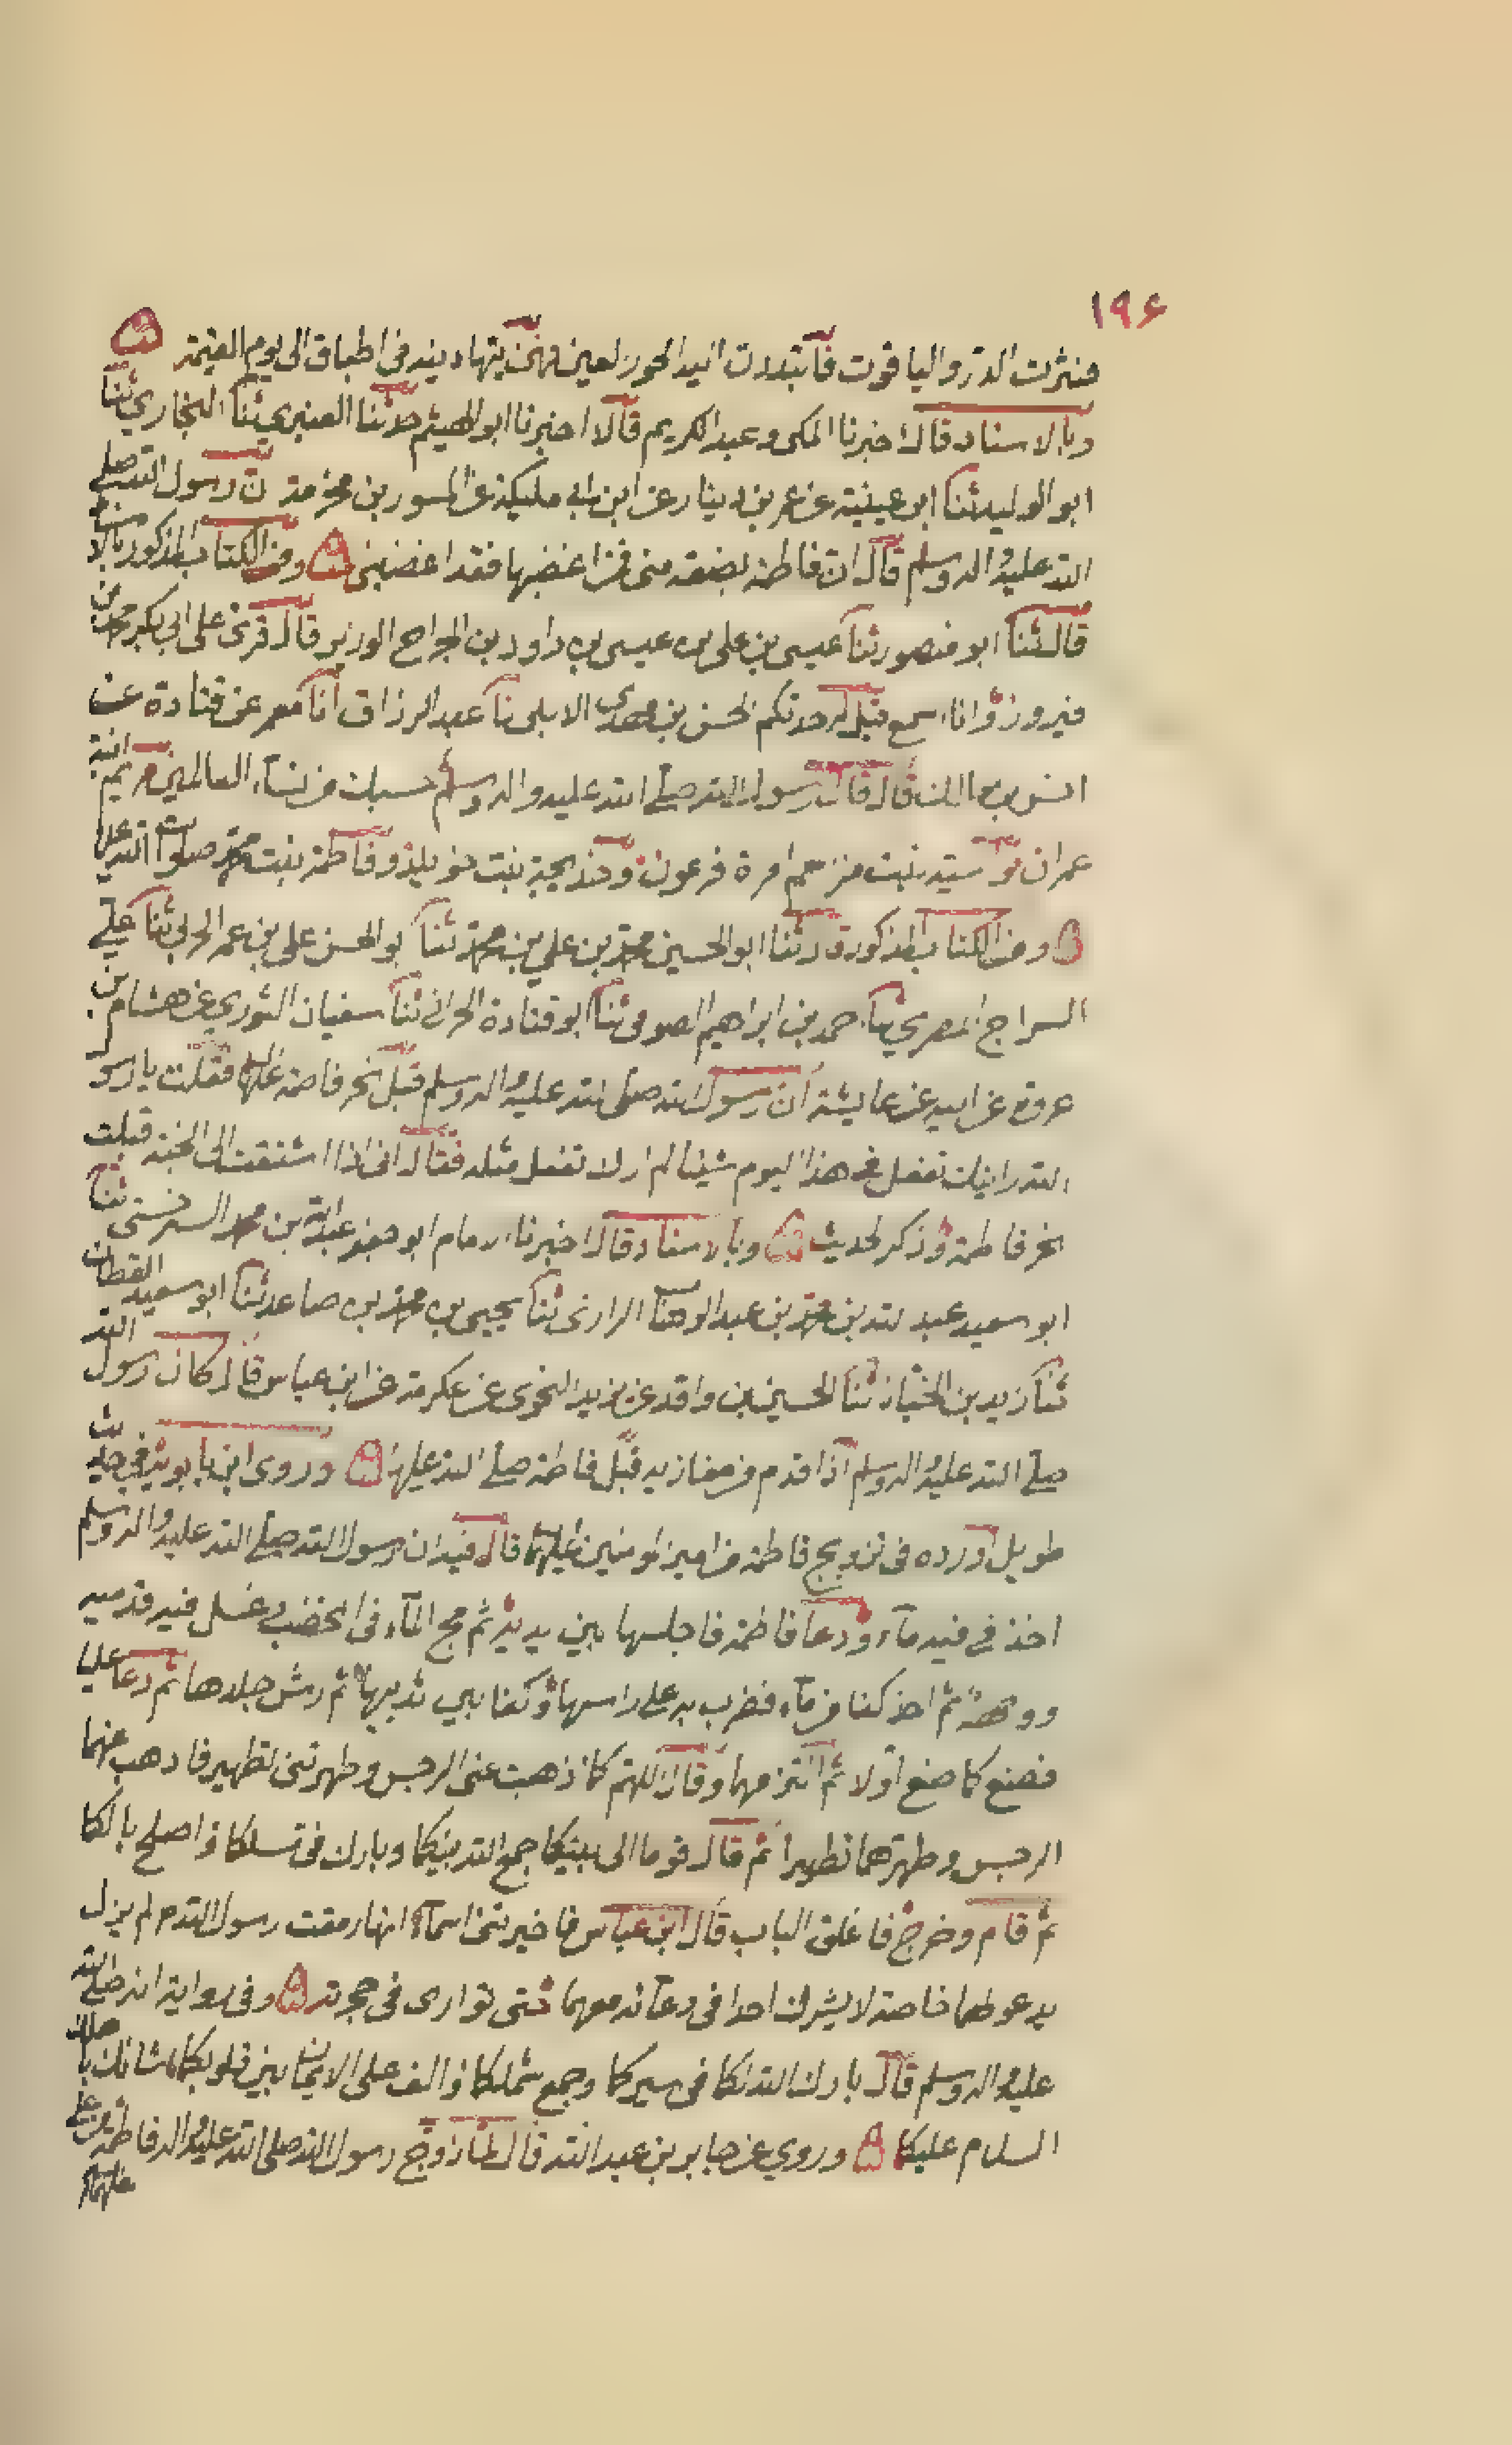 ۱۹۶
فنثرت الدر والياقوت فابتدرت اليه الحور العين فهن يتهادينه فى اطباق الى يوم القيمة
وبالاسناد قال اخبرنا المكى وعبد الكريم قالا اخبرنا ابو الهيثم حدثنا العنبرى ثنا البخارى ثنا
ابو الوليد ثنا ابو عيينة عن عمر بن دينار عن ابن ابى مليكة عن المسور بن مخرمة ان رسول الله صلى
الله عليه واله وسلم قال ان فاطمة بضعة منى فمن اغضبها فقد اغضبنى ومن الكتاب المذكور بالاسناد
قال ثنا ابو منصور ثنا عيسى بن على بن عيسى بن داود بن الجراح الوزير قال قرئ على ابى بكر محمد بن
فيروز وانا اسمع قيل له حدثكم الحسن بن مهدى الابلى نا عبد الرزاق انا معمر عن قتادة عن
انس بن مالك قال قال رسول الله صلى الله عليه واله وسلم حسبك من نساء العالمين مريم ابنة
عمران واسية بنت مزاحم امرة فرعون وخديجة بنت خويلد وفاطمة بنت محمد صلوات الله على
ومن الكتاب المذكور قال ثنا ابو الحسين محمد بن علي بن محمد ثنا ابو الحسن على بن عمر الحربى ثنا على
السراج المصري ثنا احمد بن ابراهيم الصوفى ثنا ابو قتادة الحرانى ثنا سفيان الثوري عن هشام بن
عروة عن ابيه عن عايشة ان رسول الله صلى الله عليه واله وسلم قبل نحر فاطمة عليها فقلت يا رسول
الله رايتك تفعل فى هذا اليوم شيئا لم ار لا تفعل مثله فقال انى اذا اشتقت الى الجنة قبلت
نحر فاطمة وذكر الحديث وبالاسناد قال اخبرنا الامام ابو جعفر عبد الله بن محمد السرخسى ثنا
ابو سعيد عبد الله بن محمد بن عبد الوهاب الرازى ثنا يحيى بن محمد بن صاعد ثنا ابو سعيد القطان
ثنا زيد بن الحباب ثنا الحسين بن واقد عن يزيد النحوى عن عكرمة عن ابن عباس قال كان رسول الله
صلى الله عليه واله وسلم اذا قدم من مغازيه قبل فاطمة صلى الله عليها وروى ابن بابويه فى حديث
طويل اورده فى تزويج فاطمة من امير المومنين عليهما قال فيه ان رسول الله صلى الله عليه واله وسلم
اخذ فى فيه ماء ودعا فاطمة فاجلسها بين يديه ثم مج الماء فى المخضب وغسل فيه قدميه
ووجهه ثم اخذ كفا من ماء فضرب به على راسها وكفا بين ثدييها ثم رش جلدها ثم دعا عليا
فصنع كما صنع اولا ثم التزمهما وقال اللهم كما اذهبت عنى الرجس وطهرتنى تطهير فاذهب عنهما
الرجس وطهرهما تطهيرا ثم قال قوما الى بيتكما جمع الله بينكما وبارك فى نسلكما واصلح بالكما
ثم قام وخرج فاغلق الباب قال ابن عباس فاخبرتنى اسماء انها رمقت رسول الله ص لم يزل
يدعو لهما خاصة لا يشرك احدا فى دعائه معهما حتى توارى فى حجرته وفى رواية انه صلى الله
عليه واله وسلم قال بارك الله لكما فى سيركما وجمع شملكما والف على الايمان بين قلوبكما شانك باهلك
السلام عليكما وروي عن جابر بن عبد الله قال لما زوج رسول الله صلى الله عليه واله فاطمة من على
عليهما